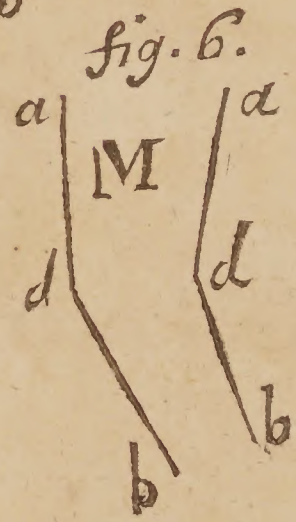 fig. 6.
a a
M
d d
b
b